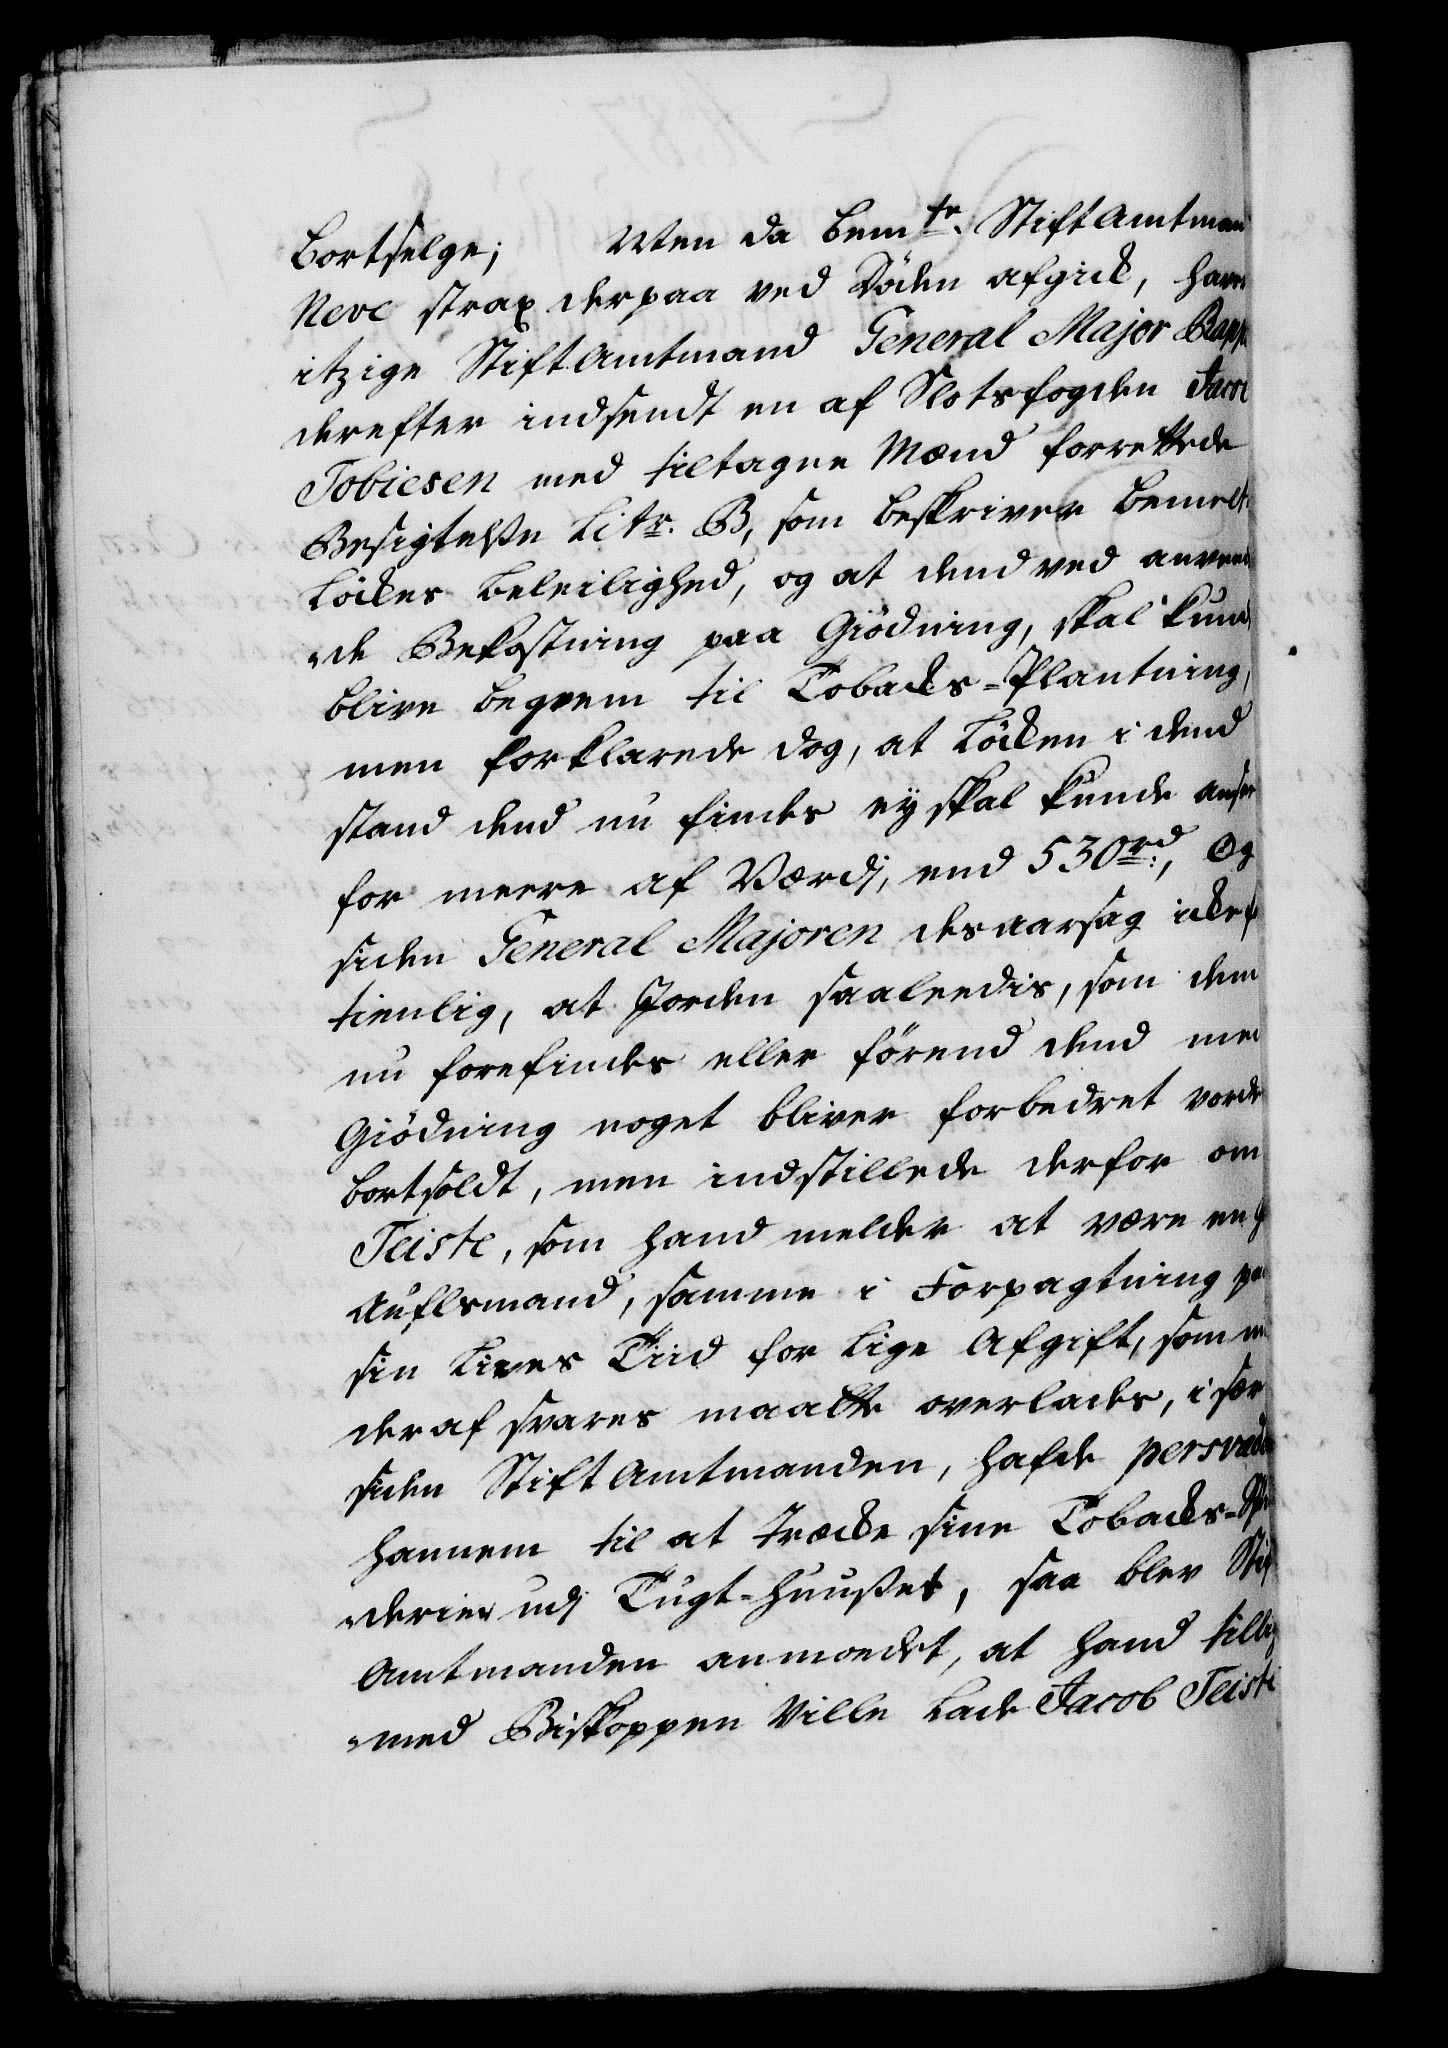 bortselge; Men da bemte. StiftAmtman
Neve strax derpaa ved Døden afgick, haver
itzige StiftAmtmand General Major Rapp
derefter indsendt en af Slotsfogden Jacob
Tobiesen med tiltagne Mænd forrettede
Besigtelße Litr. B, som beskriver bemelte
Løckes beleilighed, og at dend ved anven¬
"de Bekostning paa Giødning, skal kunde
blive beqvem til Tobacks-Plantning,
men forklarede dog, at Løcken i dend
stand dend nu findes ey skal kunde anse
for meere af Værdj, end 530rd, Og
siden General Majoren desaarsag icke
tienlig, at Jorden saaleedis, som den
nu forefindes eller førend dend med
Giødning noget bliver forbedret vorde
bortsoldt, men indstillede derfor om
Teiste, som hand melder at være en
Auflsmand, samme i Forpagtning paa
sin Lives Tiid for lige Afgift, som nu
deraf svares maatte overlades, i sær
siden StiftAmtmanden, hafde persvade
hannem til at trække sine Tobacks-Spin
"derier udj Tugt-Huußet, saa blev Stift
Amtmanden anmoedet, at hand tillig
"med Biskoppen Ville lade Jacob Teiste